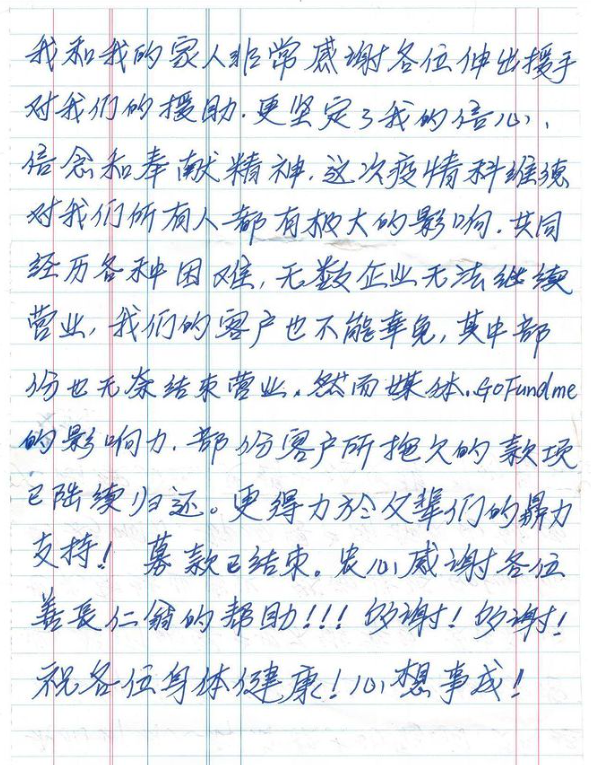 我和我的家人非常感谢各位伸出援手
对我们的援助.更坚定了我的信心、
信念和奉献精神.这次疫情科维德
对我们所有人都有极大的影响.共同
经历各种困难,无数企业无法继续
营业,我们的客户也不能幸免,其中部
份也无奈结束营业。然而媒体.GoFundme
的影响力.部份客户所拖欠的款项
已陆续归还。更得力於父辈们的鼎力
支持! 募款已结束。衷心感谢各位
善长仁翁的帮助!!! 多谢!多谢!
祝各位身体健康!心想事成!